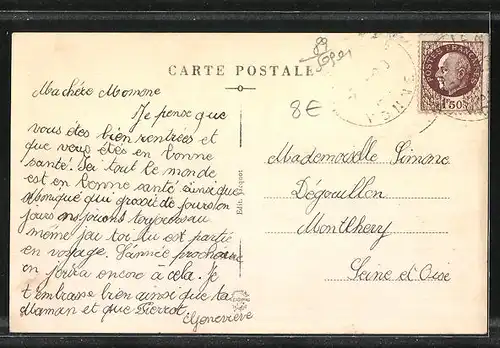 89
CARTE POSTALE
8€
POSTES FRANÇAISES
1F50
YONNE
Ma chère Momone
Je pense que
vous êtes bien rentrées et
que vous êtes en bonne
santé. Ici tout le monde
est en bonne santé ainsi que
Monique qui grossie de jours en
jours nous jouons toujours au
même jeu toi lu est partie
en voyage. L'année prochaine
on jouera encore à cela. Je
t'embrasse bien ainsi que ta
Maman et que Pierrot
Geneviève
Edit. Jacquot
Mademoiselle Simone
Dégouillon
Montlhery
Seine et Oise